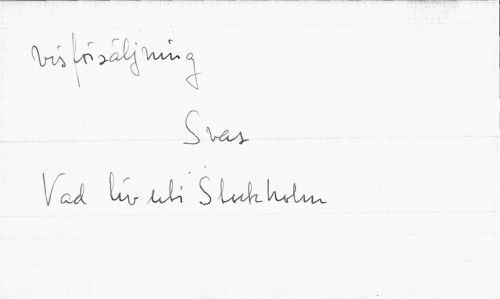 visförsäljning
Svas
Vad liv uti Stockholm